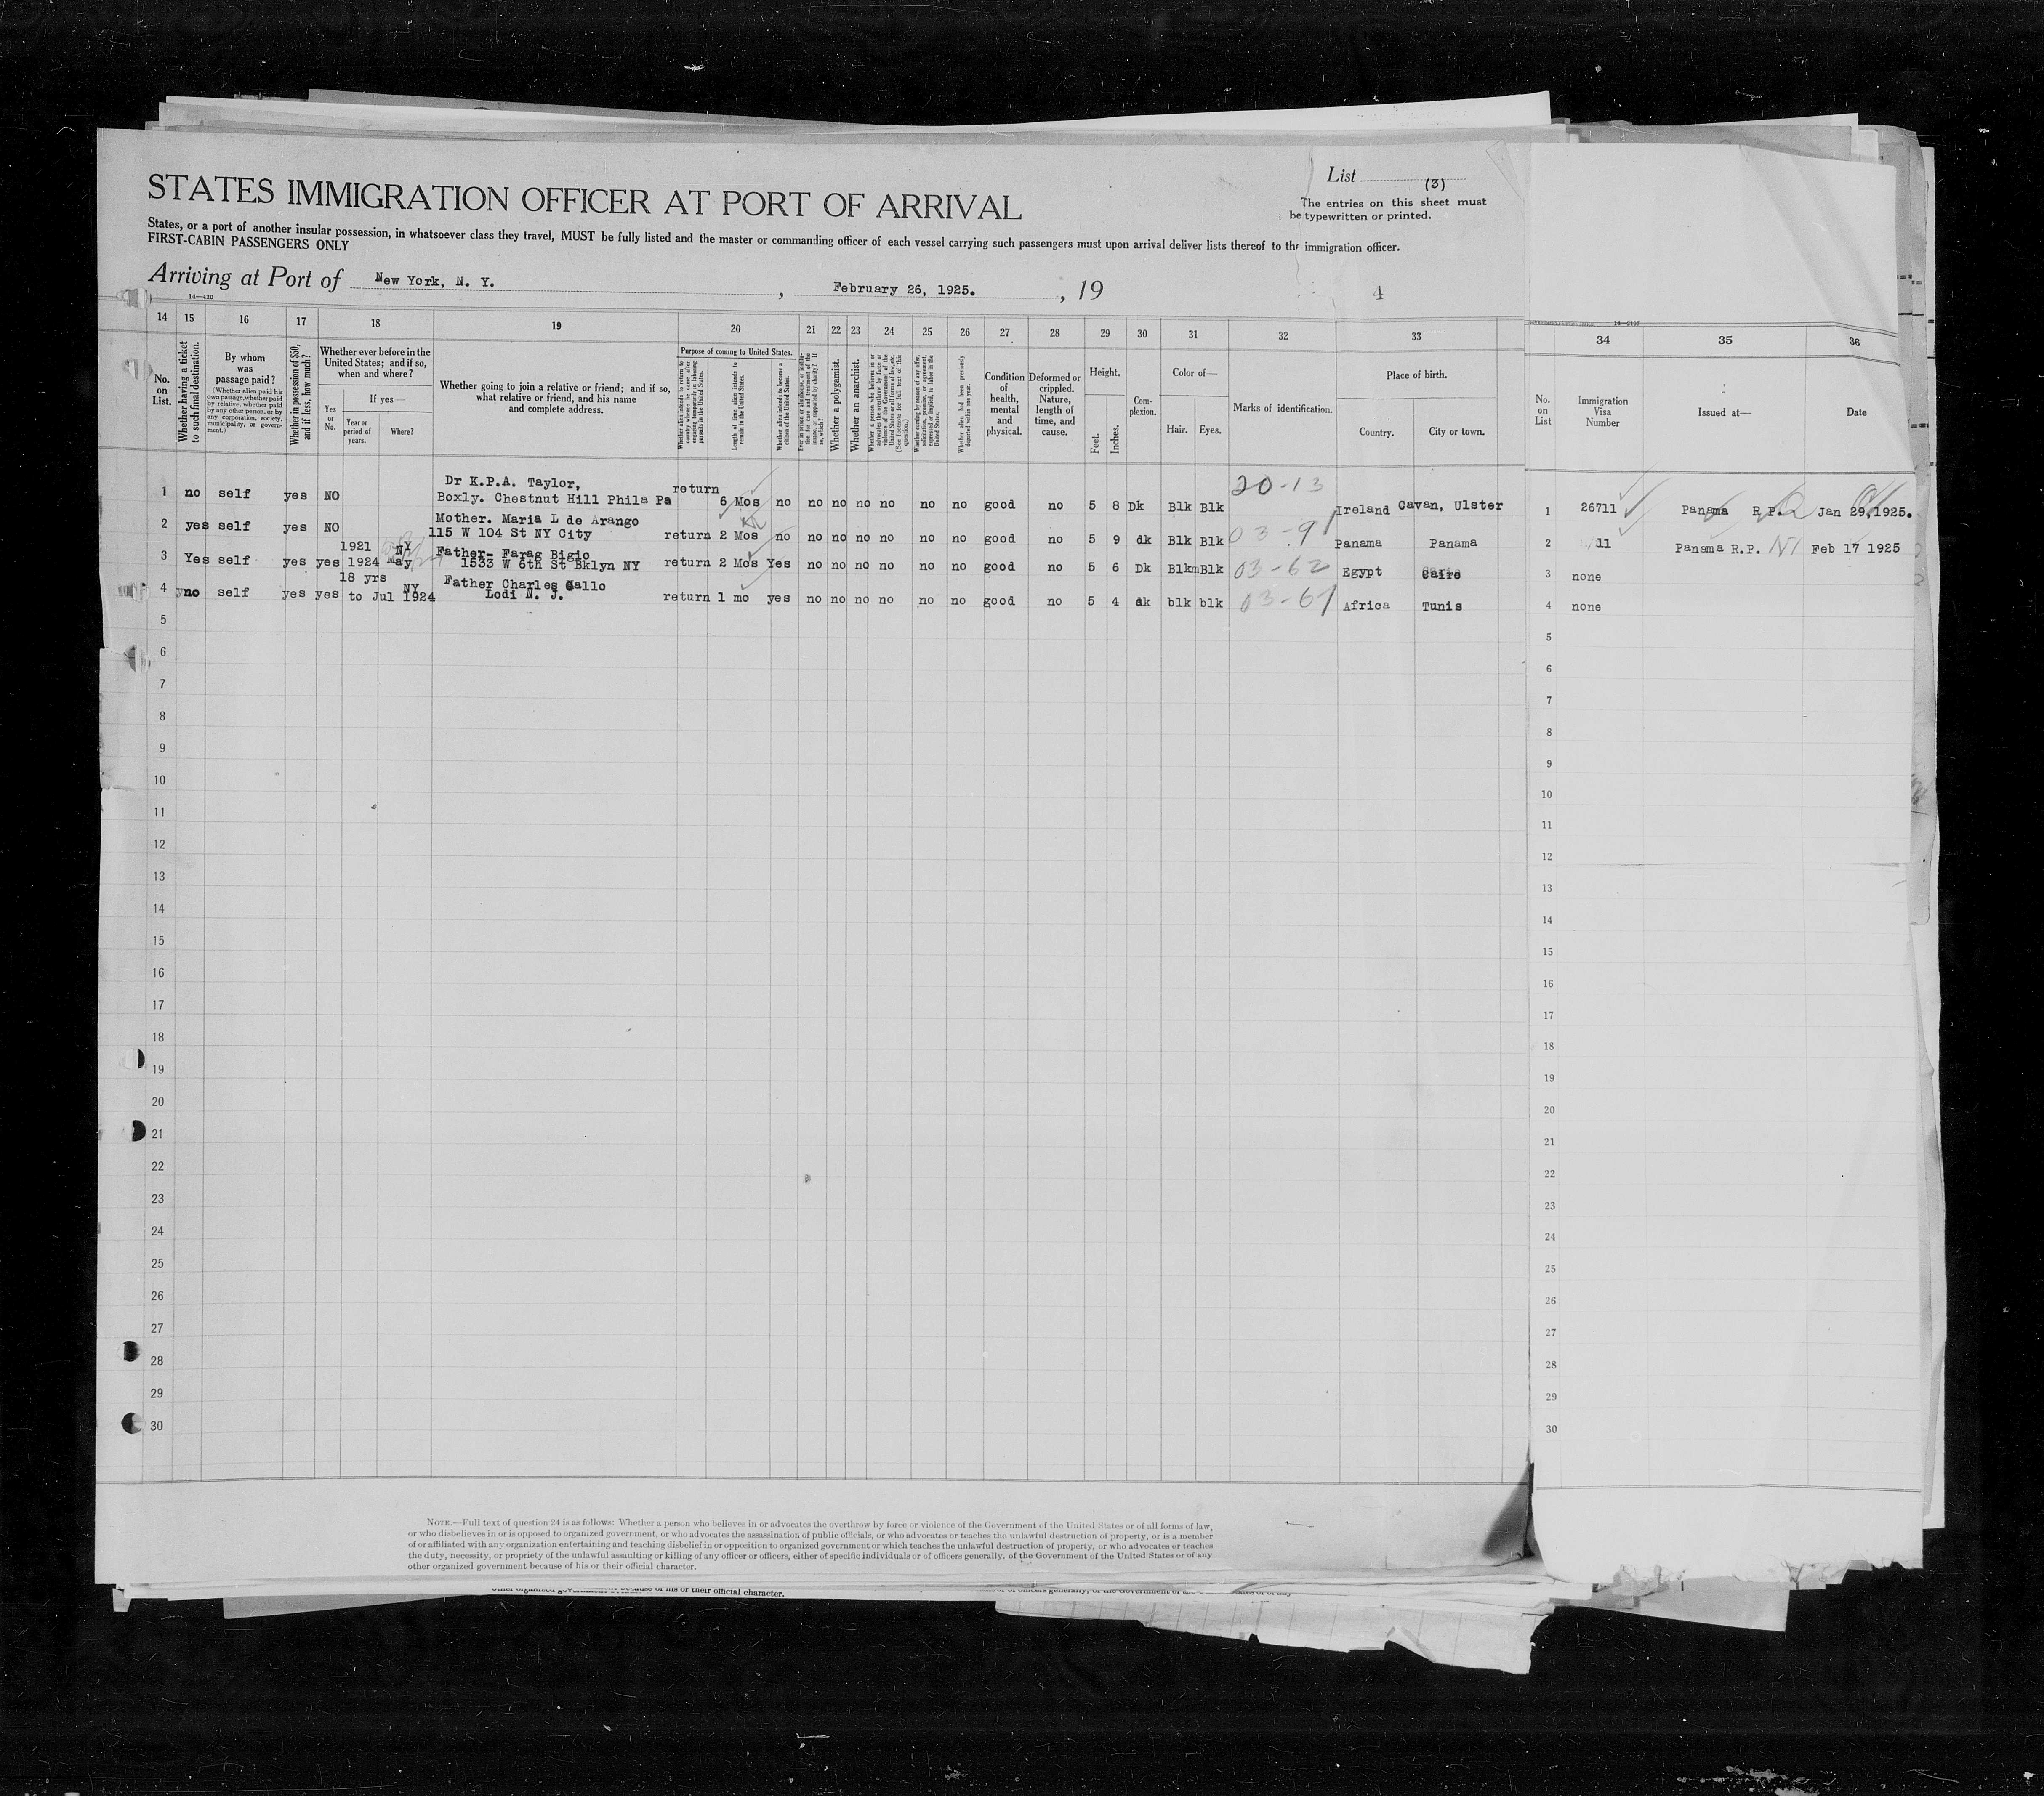 STATES IMMIGRATION OFFICER AT PORT OF ARRIVAL
List (3)
The entries on this sheet must
be typewritten or printed.
States, or a port of another insular possession, in whatsoever class they travel, MUST be fully listed and the master or commanding officer of each vessel carrying such passengers must upon arrival deliver lists thereof to the immigration officer.
FIRST-CABIN PASSENGERS ONLY
Arriving at Port of New York, N. Y. , February 26, 1925. , 19
4
14—430
14 15 16 17 18 19 20 21 22 23 24 25 26 27 28 29 30 31 32 33 34 35 36
No. on List.
Whether having a ticket to such final destination.
By whom was passage paid?
(Whether alien paid his own passage, whether paid by relative, whether paid by any other person, or by any corporation, society, municipality, or government.)
Whether in possession of $50, and if less, how much?
Whether ever before in the United States; and if so, when and where?
Yes or No.
If yes—
Year or period of years.
Where?
Whether going to join a relative or friend; and if so, what relative or friend, and his name and complete address.
Purpose of coming to United States.
Whether alien intends to return to country whence he came after engaging temporarily in laboring pursuits in the United States.
Length of time alien intends to remain in the United States.
Whether alien intends to become a citizen of the United States.
Ever in prison or almshouse, or institution for care and treatment of the insane, or supported by charity? If so, which?
Whether a polygamist.
Whether an anarchist.
Whether coming by reason of any offer, solicitation, promise, or agreement, expressed or implied, to labor in the United States.
Whether alien had been previously deported within one year.
Condition of health, mental and physical.
Deformed or crippled. Nature, length of time, and cause.
Height.
Feet.
Inches.
Complexion.
Color of—
Hair.
Eyes.
Marks of identification.
Place of birth.
Country.
City or town.
No. on List
Immigration Visa Number
Issued at—
Date
1 no self yes NO Dr K.P.A. Taylor,
Boxly. Chestnut Hill Phila Pa return 6 Mos no no no no no no no good no 5 8 Dk Blk Blk 20-13 Ireland Cavan, Ulster 1 26711 Panama R P. Jan 29,1925.
2 yes self yes NO Mother. Maria L de Arango
115 W 104 St NY City return 2 Mos no no no no no no no good no 5 9 dk Blk Blk 03-91 Panama Panama 2 11 Panama R.P. Feb 17 1925
3 Yes self yes yes 1921 NY
1924 May, Father- Farag Bigio
1533 W 6th St Bklyn NY return 2 Mos Yes no no no no no no good no 5 6 Dk Blkm Blk 03-62 Egypt Cairo 3 none
4 no self yes yes 18 yrs NY
to Jul 1924 Father Charles Gallo
Lodi N. J. return 1 mo yes no no no no no no good no 5 4 dk blk blk 03-61 Africa Tunis 4 none
5 5
6 6
7 7
8 8
9 9
10 10
11 11
12 12
13 13
14 14
15 15
16 16
17 17
18 18
19 19
20 20
21 21
22 22
23 23
24 24
25 25
26 26
27 27
28 28
29 29
30 30
NOTE.—Full text of question 24 is as follows: Whether a person who believes in or advocates the overthrow by force or violence of the Government of the United States or of all forms of law,
or who disbelieves in or is opposed to organized government, or who advocates the assassination of public officials, or who advocates or teaches the unlawful destruction of property, or is a member
of or affiliated with any organization entertaining and teaching disbelief in or opposition to organized government or which teaches the unlawful destruction of property, or who advocates or teaches
the duty, necessity, or propriety of the unlawful assaulting or killing of any officer or officers, either of specific individuals or of officers generally, of the Government of the United States or of any
other organized government because of his or their official character.